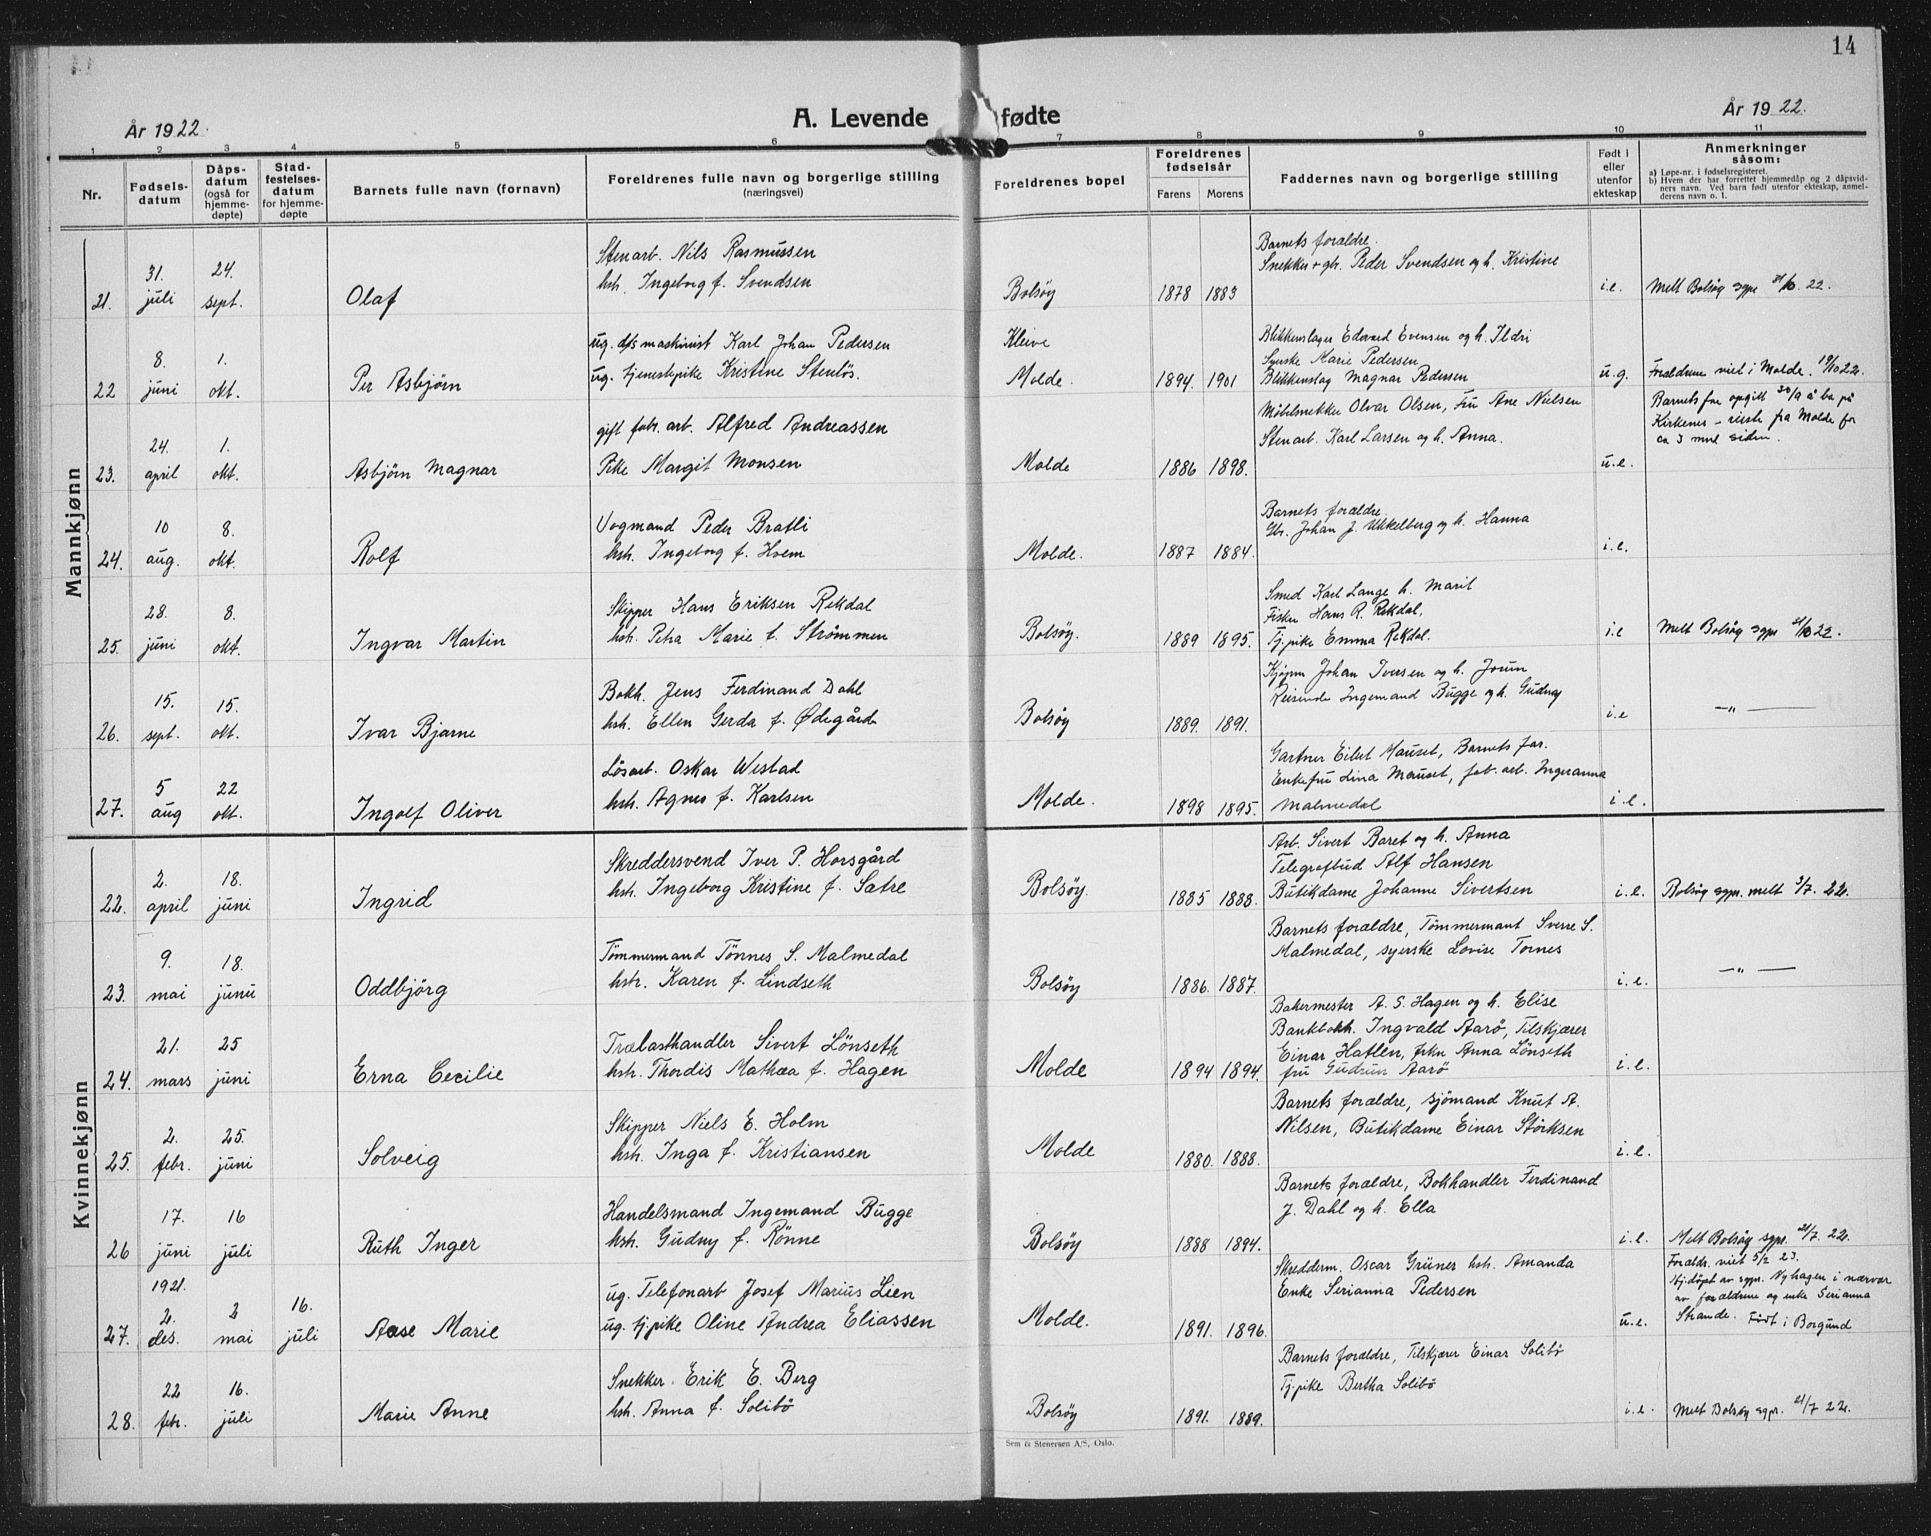 14
År 1922.
A. Levende fødte
År 1922.
1 2 3 4 5 6 7 8 9 10 11
Nr.
Fødsels-
datum
Dåps-
datum
(også for
hjemme-
døpte)
Stad-
festelses-
datum
for hjemme-
døpte
Barnets fulle navn (fornavn)
Foreldrenes fulle navn og borgerlige stilling
(næringsvei)
Foreldrenes bopel
Foreldrenes
fødselsår
Farens Morens
Faddernes navn og borgerlige stilling
Født i
eller
utenfor
ekteskap
Anmerkninger
såsom:
a) Løpe-nr. i fødselsregisteret.
b) Hvem der har forrettet hjemmedåp og 2 dåpsvid-
ners navn. Ved barn født utenfor ekteskap, anmel-
derens navn o. l.
Mannkjønn
21. 31. juli 24. sept. Olaf
Stenarb. Nils Rasmussen
hstr. Ingeborg f. Svendsen
Bolsøy 1878 1883
Barnets forældre.
Snekker + gbr. Peder Svendsen og h. Kristine
i.e. Melt Bolsøy sgpr. 21/10. 22.
22 8. juni 1. okt. Per Asbjørn
ug. d/s maskinist Karl Johan Pedersen
ug. tjenestepike Kristine Stenløs.
Kleive
Molde. 1894. 1901
Blikkenslager Edvard Evensen og h. Ildri
Syerske Marie Pedersen
Blikkenslag Magnar Pedersen
u.g. Forældrene viet i Molde. 19/10 22.
23. 24. april 1. okt. Asbjørn Magnar
gift fabr. arb. Alfred Andreassen
Pike Margit Monsen
Molde 1886 1898.
Møbelsnekker Olvar Olsen, Fru Ane Nielsen
Stenarb. Karl Larsen og h. Anna.
u.e.
Barnets far opgitt 30/9 å bo på
Kirkenes – reiste fra Molde for
ca 3 mnd siden.
24. 10 aug. 8. okt. Rolf
Vogmand Peder Bratli
hstr. Ingeborg f. Hvem
Molde. 1887 1884.
Barnets forældre
Gbr. Johan J. Ukkelberg og h. Hanna
i.e.
25. 28. juni 8. okt. Ingvar Martin
Skipper Hans Eriksen Rekdal
hstr. Petra Marie f. Strømmen
Bolsøy. 1889 1895.
Smed Karl Lange h. Marit
Fisker Hans R. Rekdal.
Tj.pike Emma Rekdal.
i.e Melt Bolsøy sgpr 21/10 22.
26. 15. sept. 15. okt. Ivar Bjarne
Bokh. Jens Ferdinand Dahl
hstr. Ellen Gerda f. Ødegård
Bolsøy 1889. 1891.
Kjøpm Johan Iversen og h. Jorun
Reisende Ingemand Bugge og h. Gudny
i.e –"–
27. 5 aug 22 okt. Ingolf Oliver
Løsarb. Oskar Westad
hstr. Agnes f. Karlsen
Molde. 1898 1895.
Gartner Eilert Mauset, Barnets far.
Enkefru Lina Mauset, fab. arb. Ingeranna
Malmedal
i.e.
Kvinnekjønn
22. 2. april 18. juni Ingrid
Skreddersvend Iver P. Horsgård
hstr. Ingeborg Kristine f. Sætre
Bolsøy. 1885 1888.
Arb. Sivert Baret og h. Anna
Telegrafbud Alf Hansen
Butikdame Johanne Sivertsen
i.e. Bolsøy sgpr. melt 3/7. 22.
23. 9. mai 18. juni Oddbjörg
Tömmermand Tönnes S. Malmedal
hstr. Karen f. Lindseth
Bolsöy 1886. 1887.
Barnets forældre, Tømmermant Sverre S.
Malmedal, syerske Lovise Tornes
i.e. –"–
24. 21. mars 25 juni Erna Cecilie
Trælasthandler Sivert Lönseth
hstr. Thordis Mathea f. Hagen
Molde 1894 1894.
Bakermester A. S. Hagen og h. Elise
Bankbokh. Ingvald Aarö, Tilskjærer
Einar Hatlen, frkn Anna Lönseth
fru Gudrun Aarö
i.e.
25. 2. febr. 25. juni Solveig
Skipper Niels E. Holm
hstr. Inga f. Kristiansen
Molde 1880. 1888.
Barnets forældre, sjömand Knut A.
Nilsen, Butikdame Einar Störksen
i.e.
26 17. juni 16 juli Ruth Inger
Handelsmand Ingemand Bugge
hstr. Gudny f. Rönne
Bolsöy 1888 1894.
Barnets forældre, Bokhandler Ferdinand
J. Dahl og h. Ella
i.e. Melt Bolsøy sgpr. 21/7. 22.
27. 1921. 2. des. 2 mai 16. juli Aase Marie
ug. Telefonarb Josef Marius Lien
ug. tj.pike Oline Andrea Eliassen
Molde. 1891. 1896.
Skredderm. Oscar Grüner hstr. Amanda
Enke Serianna Pedersen
u.e.
Forældr. viet 5/2 23.
Hj.døpt av sgpr. Nyhagen i nærvær
av forældrene og enke Serianna
Strande. Født i Borgund
28. 22 febr. 16. juli Marie Anne
Snekker Erik E. Berg
hstr. Anna f. Solibö
Bolsöy 1891. 1889.
Barnets forældre, Tilskjærer Einar Solibö
Tj.pike Bertha Solibö
i.e. Melt Bolsøy sgpr. 21/7 22.
Sem & Stenersen A/S, Oslo.